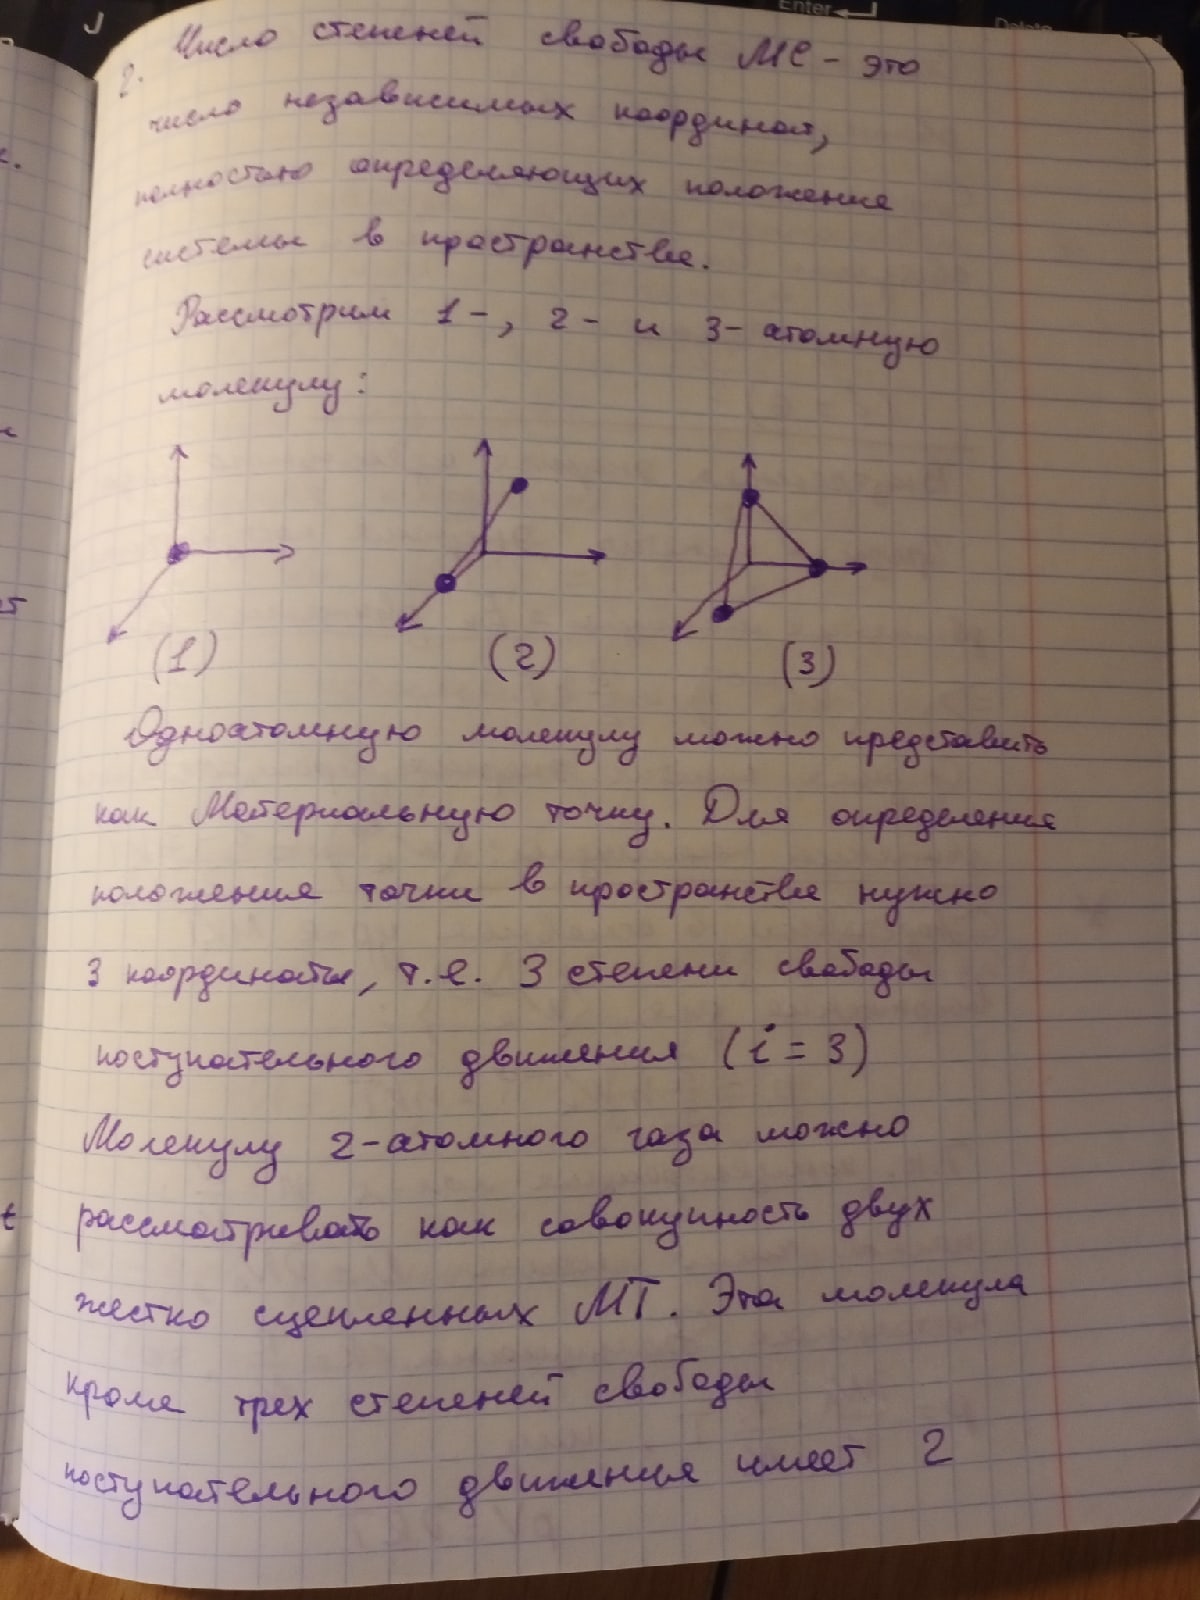 Enter
Delete
End
J
2. Число степеней свободы МС - это
число независимых координат,
полностью определяющих положение
системы в пространстве.
Рассмотрим 1-, 2- и 3-атомную
молекулу:
(1) (2) (3)
Одноатомную молекулу можно представить
как Материальную точку. Для определения
положения точки в пространстве нужно
3 координаты, т.е. 3 степени свободы
поступательного движения (i = 3)
Молекулу 2-атомного газа можно
рассматривать как совокупность двух
жестко сцепленных МТ. Эта молекула
кроме трех степеней свободы
поступательного движения имеет 2